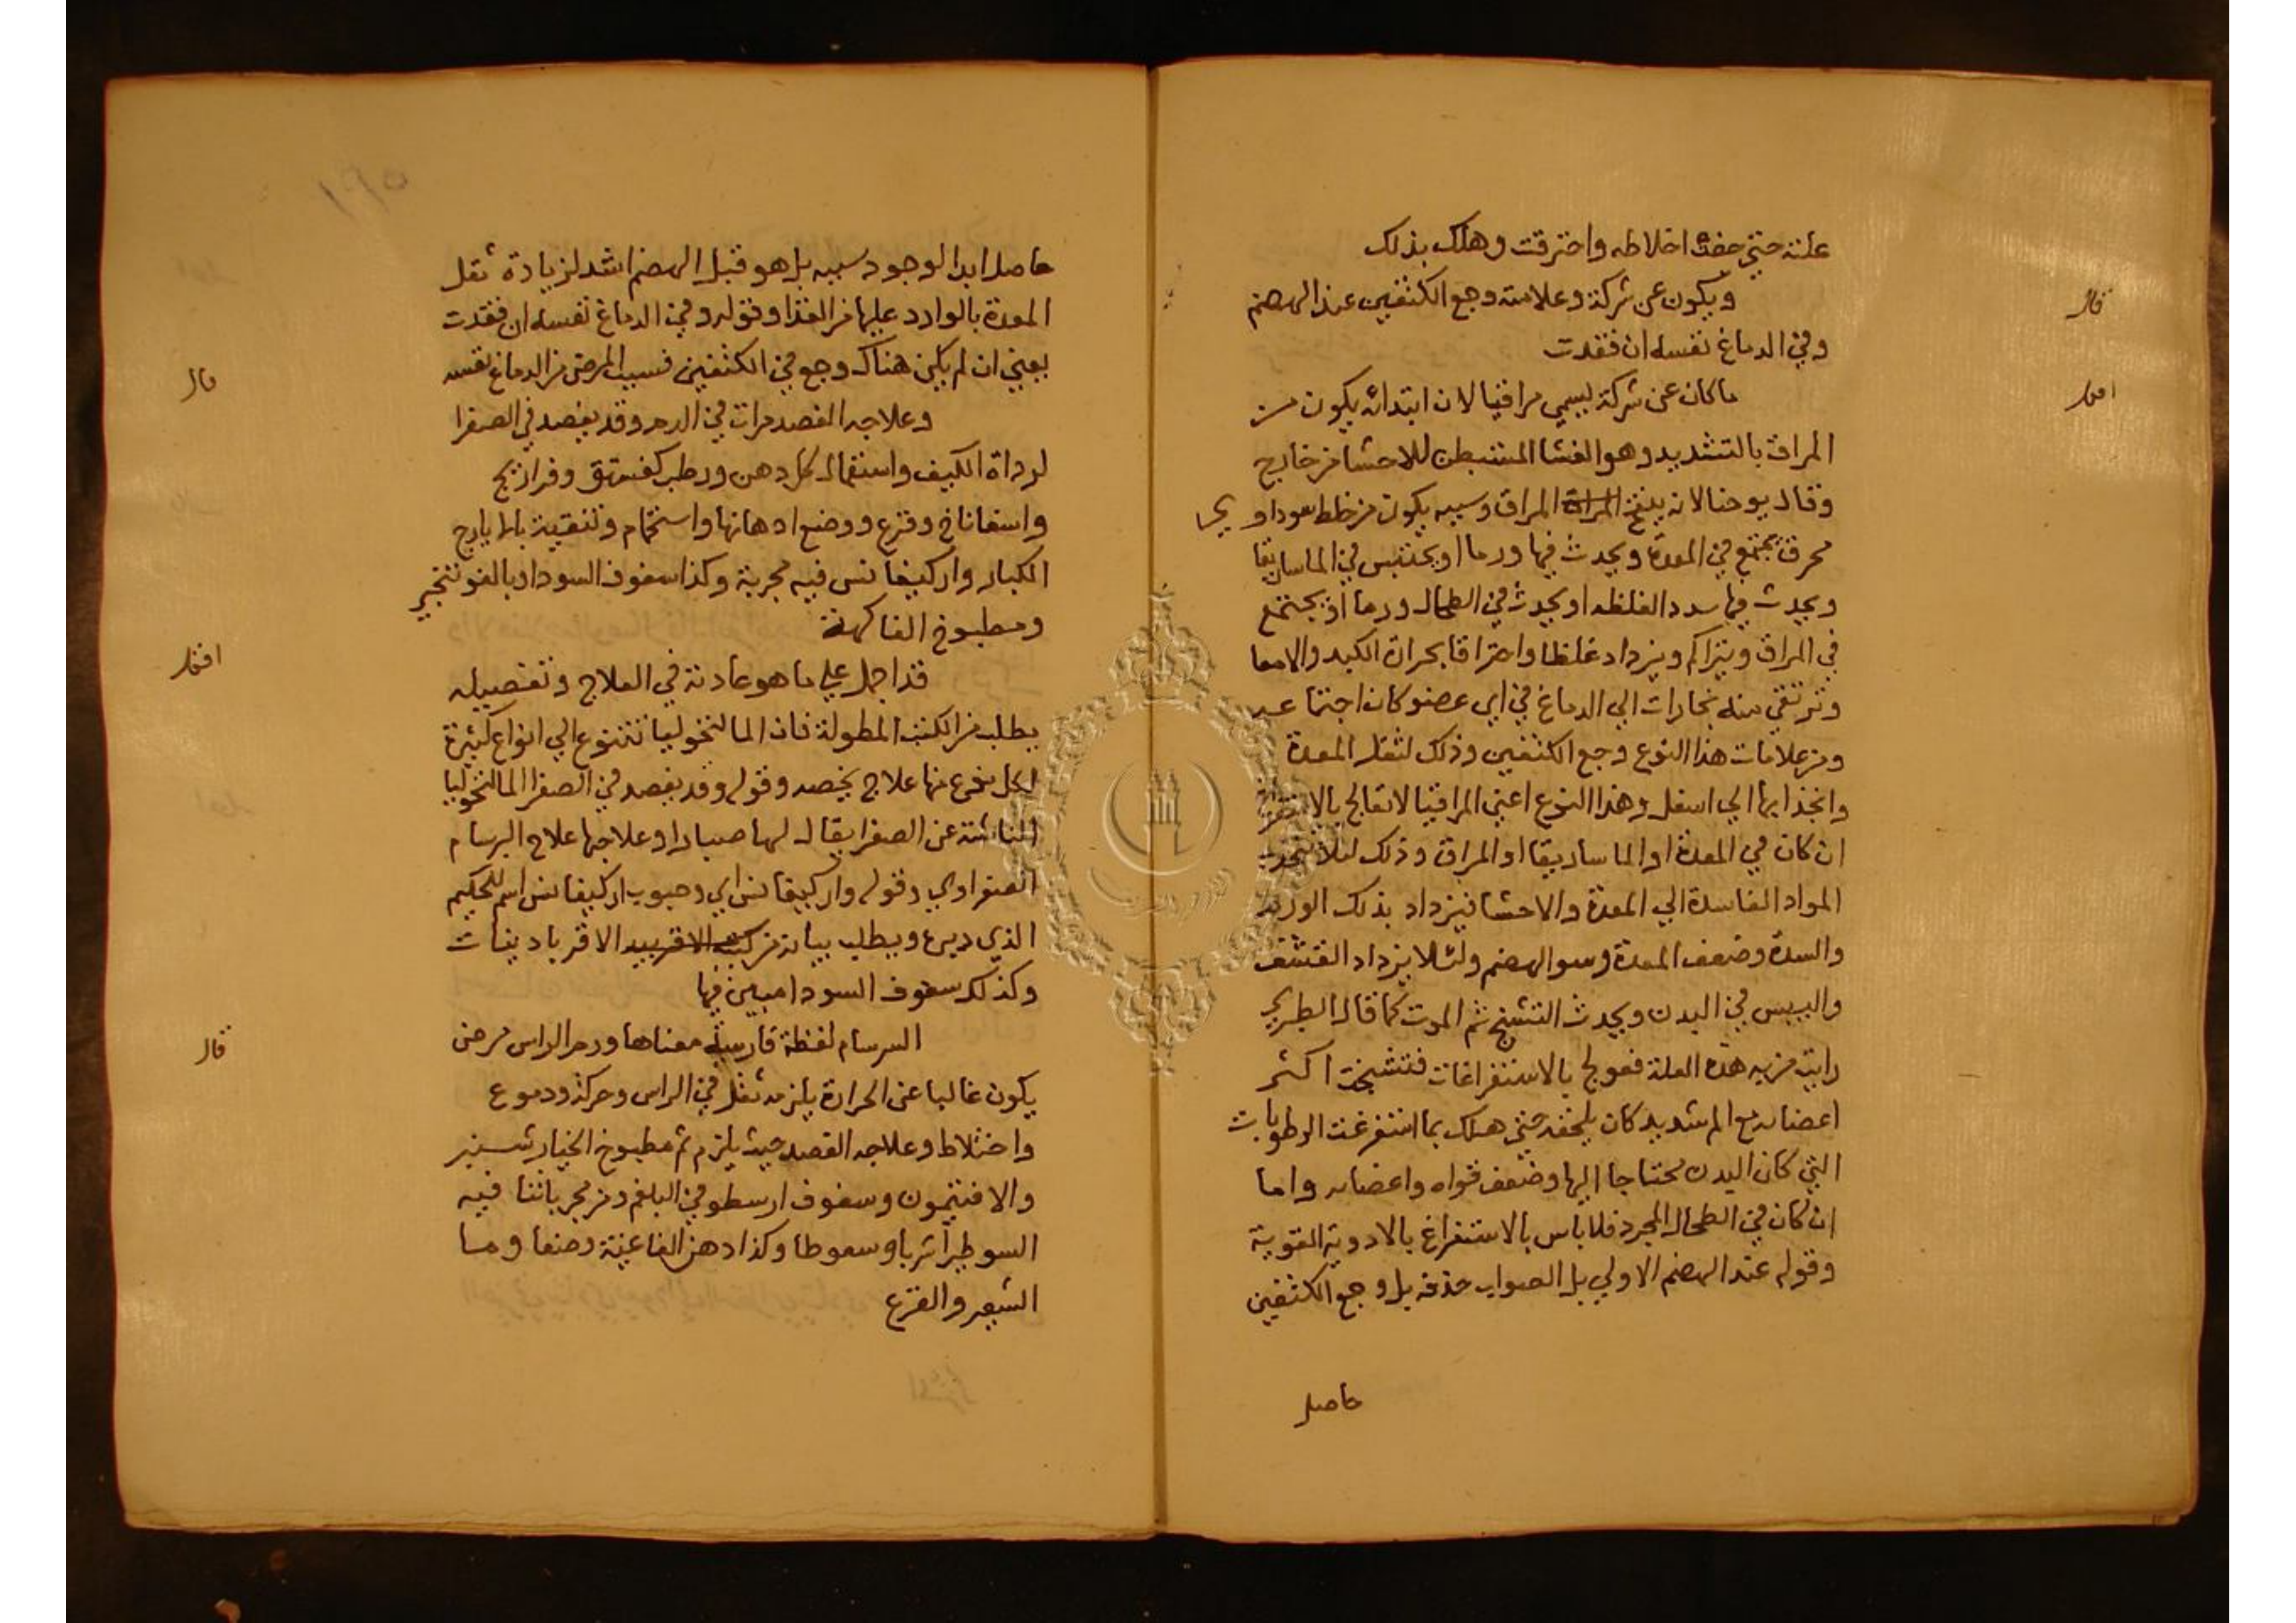 علته حتي جفت اخلاطه واحترقت وهلك بذلك
قال
ويكون عن شركة وعلامته وجع الكتفين عند الهضم
وفي الدماغ نفسه ان فقدت
اقول
ما كان عن شركة يسمي مراقيا لان ابتدائه يكون من
المراق بالتشديد وهو الغشا المستبطن للاحشا من خارج
وقال يوحنا لانه ينفخ المراق وسببه يكون من خلط سوداوي
محرق يجتمع في المعدة ويحدث فيها ورما او يحتبس في الماساريقا
ويحدث فيها سدد الغلظه او يحدث في الطحال ورما او يجتمع
في المراق ويتراكم ويزداد غلظا واحتراقا بحرارة الكبد والامعا
وترتقي منه بخارات الي الدماغ في اي عضو كان اجتماعه
ومن علامات هذا النوع وجع الكتفين وذلك لثقل المعدة
وانجذابها الي اسفل وهذا النوع اعني المراقيا لا تعالج بالاستفراغ
ان كان في المعدة او الماساريقا او المراق وذلك لئلا تنجذب
المواد الفاسدة الي المعدة والاحشا فيزداد بذلك الورم
والسدة وضعف المعدة وسو الهضم ولئلا يزداد القشف
واليبس في البدن ويحدث التشنج ثم الموت كما قال الطبري
رايت من به هذه العلة فعولج بالاستفراغات فتشنجت اكثر
اعضايه مع الم شديد كان يلحقه حتي هلك بما استفرغت الرطوبات
التي كان البدن محتاجا اليها وضعف قواه واعضايه واما
ان كان في الطحال المجرد فلا باس بالاستفراغ بالادوية القوية
وقوله عند الهضم الاولي بل الصواب حذفه بل وجع الكتفين
حاصل
حاصل ابدا لوجود سببه بل هو قبل الهضم اشد لزيادة ثقل
المعدة بالوارد عليها من الغذا وقوله وفي الدماغ نفسه ان فقدت
يعني ان لم يكن هناك وجع في الكتفين فسبب المرض من الدماغ نفسه
قال
وعلاجه الفصد مرات في الدم وقد يفصد في الصفرا
لرداة الكيف واستعمال كل دهن ورطب كفستق وفراريج
واسفاناخ وقرع ووضع ادهانها واستحمام وتنقية بالايارج
الكبار واركيغانس فيه مجربة وكذا سفوف السودا وبالغوتنجير
ومطبوخ الفاكهة
اقول
قد اجمل علي ما هو عادته في العلاج وتفصيله
يطلب من الكتب المطولة فان المالنخوليا تتنوع الي انواع كثيرة
لكل نوع منها علاج يخصه وقوله وقد يفصد في الصفرا المالنخوليا
الناشئة عن الصفرا يقال لها صبارا وعلاجها علاج البرسام
الصفراوي وقوله واركيغانس اي وحبوب اركيغانس اسم للحكيم
الذي دبره ويطلب بيانه من كتب الاقربيد الاقرباد ينات
وكذلك سفوف السودا مبين فيها
قال
السرسام لفظة فارسية معناها ورم الراس مرض
يكون غالبا عن الحرارة يلزمه ثقل في الراس وحركة ودموع
واختلاط وعلاجه الفصد حيث يلزم ثم مطبوخ الخيار شنبر
والافتيمون وسفوف ارسطو في البلغم ومن مجرباتنا فيه
السوطيرا شربا وسعوطا وكذا دهن الفاغية وضعا وما
الشعير والقرع